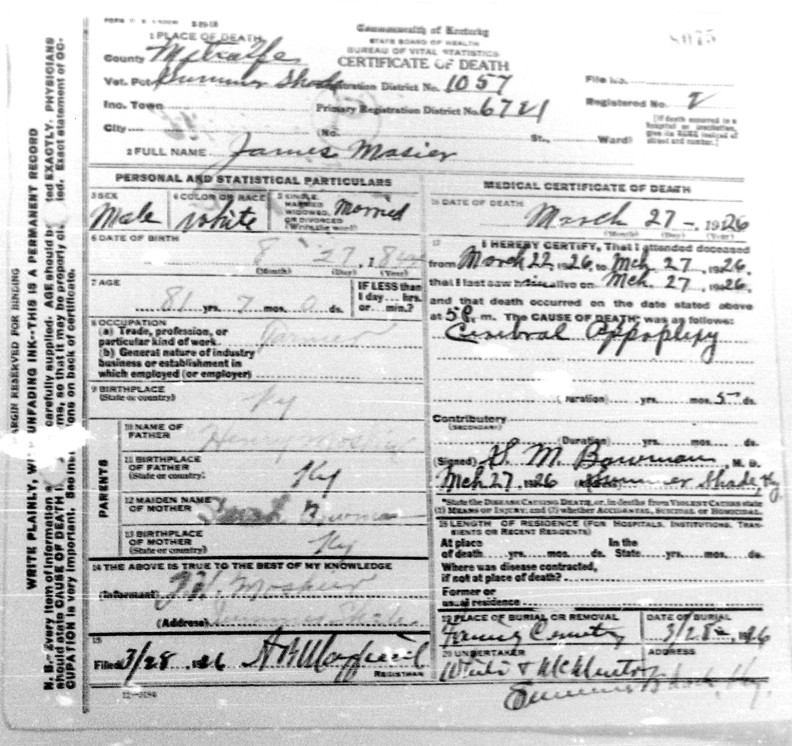 1 PLACE OF DEATH
County Metcalfe
Vot. Pct. Summer Shade
Inc. Town
City
Commonwealth of Kentucky
STATE BOARD OF HEALTH
BUREAU OF VITAL STATISTICS
CERTIFICATE OF DEATH
Registration District No. 1057
Primary Registration District No. 6721
(No. St., Ward)
File No.
Registered No. 2
[If death occurred in a
hospital or institution,
give its NAME instead of
street and number.]
2 FULL NAME James Mosier
PERSONAL AND STATISTICAL PARTICULARS
3 SEX
Male
4 COLOR OR RACE
White
5 SINGLE,
MARRIED
WIDOWED,
OR DIVORCED
(Write the word)
Married
6 DATE OF BIRTH
8 27, 184
(Month) (Day) (Year)
7 AGE
81 yrs. 7 mos. 0 ds.
IF LESS than
1 day... hrs.
or ... min.?
8 OCCUPATION
(a) Trade, profession, or
particular kind of work Farmer
(b) General nature of industry
business or establishment in
which employed (or employer)
9 BIRTHPLACE
(State or country) Ky
PARENTS
10 NAME OF
FATHER Henry
11 BIRTHPLACE
OF FATHER
(State or country) Ky
12 MAIDEN NAME
OF MOTHER Sarah
13 BIRTHPLACE
OF MOTHER
(State or country) Ky
14 THE ABOVE IS TRUE TO THE BEST OF MY KNOWLEDGE
(Informant)
(Address) Summer Shade
15
Filed 3/28, 1926
REGISTRAR
12-3184
MEDICAL CERTIFICATE OF DEATH
16 DATE OF DEATH
March 27 - 1926
(Month) (Day) (Year)
17 I HEREBY CERTIFY, That I attended deceased
from March 22, 1926, to Mch. 27, 1926,
that I last saw him alive on Mch. 27, 1926,
and that death occurred on the date stated above
at 5 P. m. The CAUSE OF DEATH was as follows:
Cerebral Appoplexy
(Duration) yrs. mos. 5 ds.
Contributory
(SECONDARY)
(Duration) yrs. mos. ds.
(Signed) S. M. Bowman, M. D.
Mch 27, 1926 (Address) Summer Shade, Ky
*State the DISEASE CAUSING DEATH, or, in deaths from VIOLENT CAUSES state
(1) MEANS OF INJURY; and (2) whether ACCIDENTAL, SUICIDAL or HOMICIDAL.
18 LENGTH OF RESIDENCE (FOR HOSPITALS, INSTITUTIONS, TRANSIENTS OR RECENT RESIDENTS)
At place In the
of death yrs. mos. ds. State yrs. mos. ds.
Where was disease contracted,
if not at place of death?
Former or
usual residence
19 PLACE OF BURIAL OR REMOVAL
Cemetry
DATE OF BURIAL
3/28, 1926
20 UNDERTAKER
ADDRESS
Summer Shade, Ky.
MARGIN RESERVED FOR BINDING
WRITE PLAINLY, WITH UNFADING INK--THIS IS A PERMANENT RECORD
N. B.--Every item of information carefully supplied. AGE should be stated EXACTLY. PHYSICIANS
should state CAUSE OF DEATH in terms, so that it may be properly Exact statement of OC-
CUPATION is very important. See instructions on back of certificate.